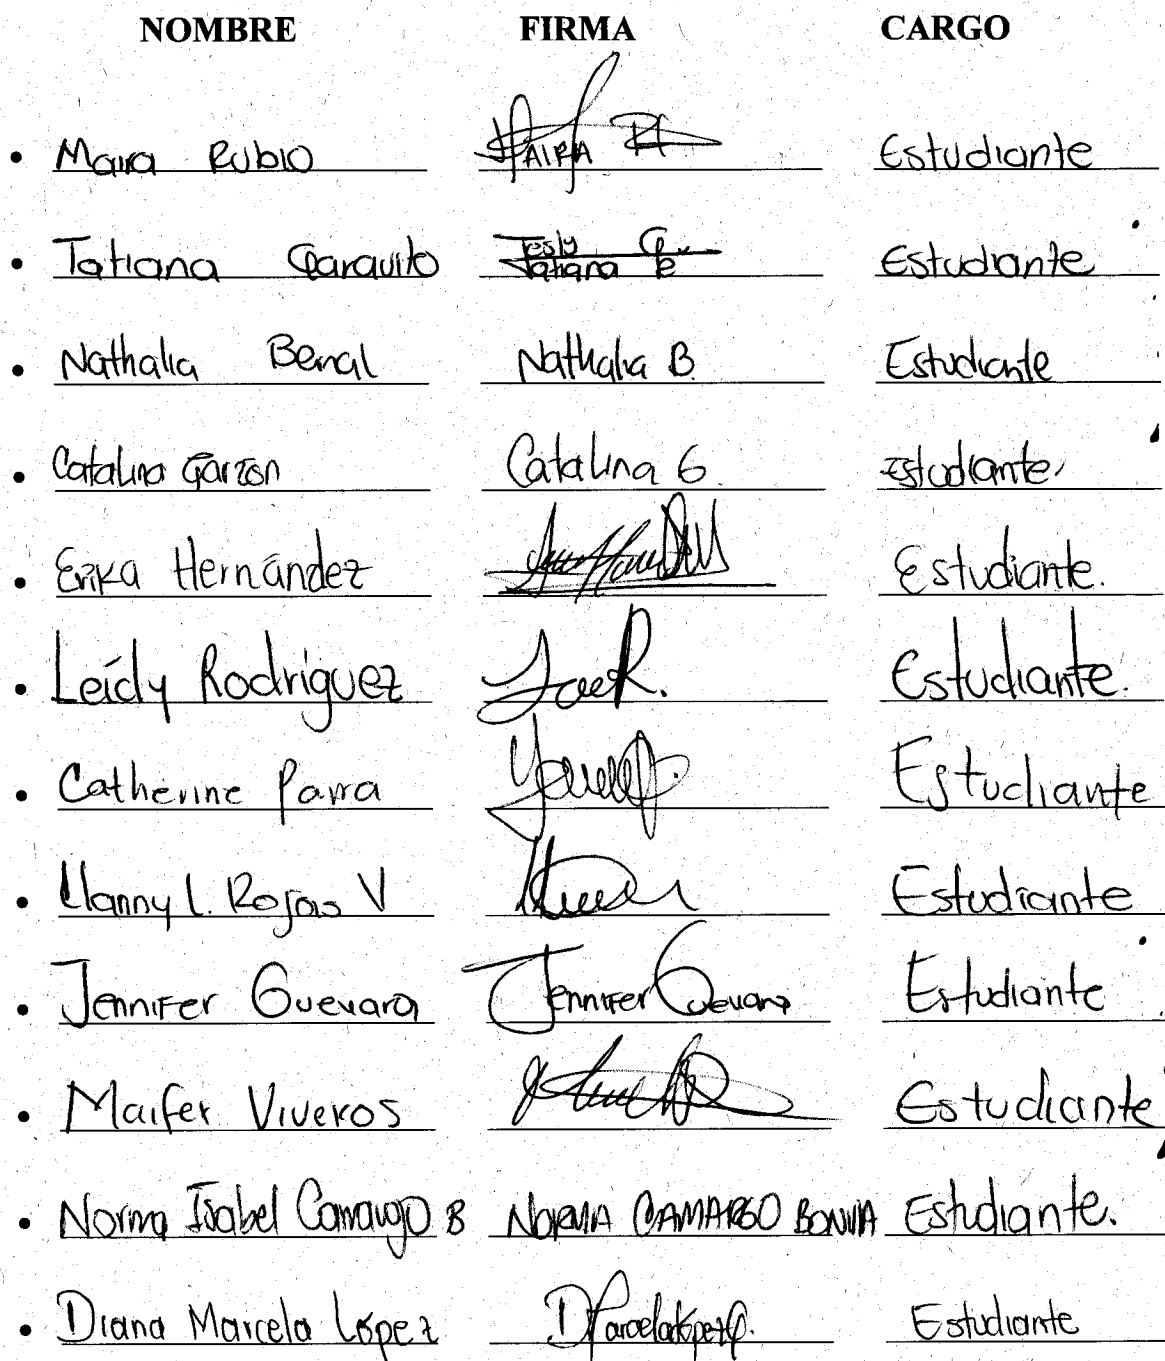 NOMBRE FIRMA CARGO
Maira Rubio MAIRA Estudiante
Tatiana Garavito Tatiana Estudiante
Nathalia Bernal Nathalia B. Estudiante
Catalina Garzon Catalina G. Estudiante
Erika Hernández Estudiante.
Leidy Rodriguez Estudiante.
Catherine Parra Estudiante
L. Rojas V Estudiante
Jennifer Guevara Jennifer Guevara Estudiante
Maifer Viveros Estudiante
Norma Isabel Camargo B NORMA CAMARGO Estudiante.
Diana Marcela López Estudiante